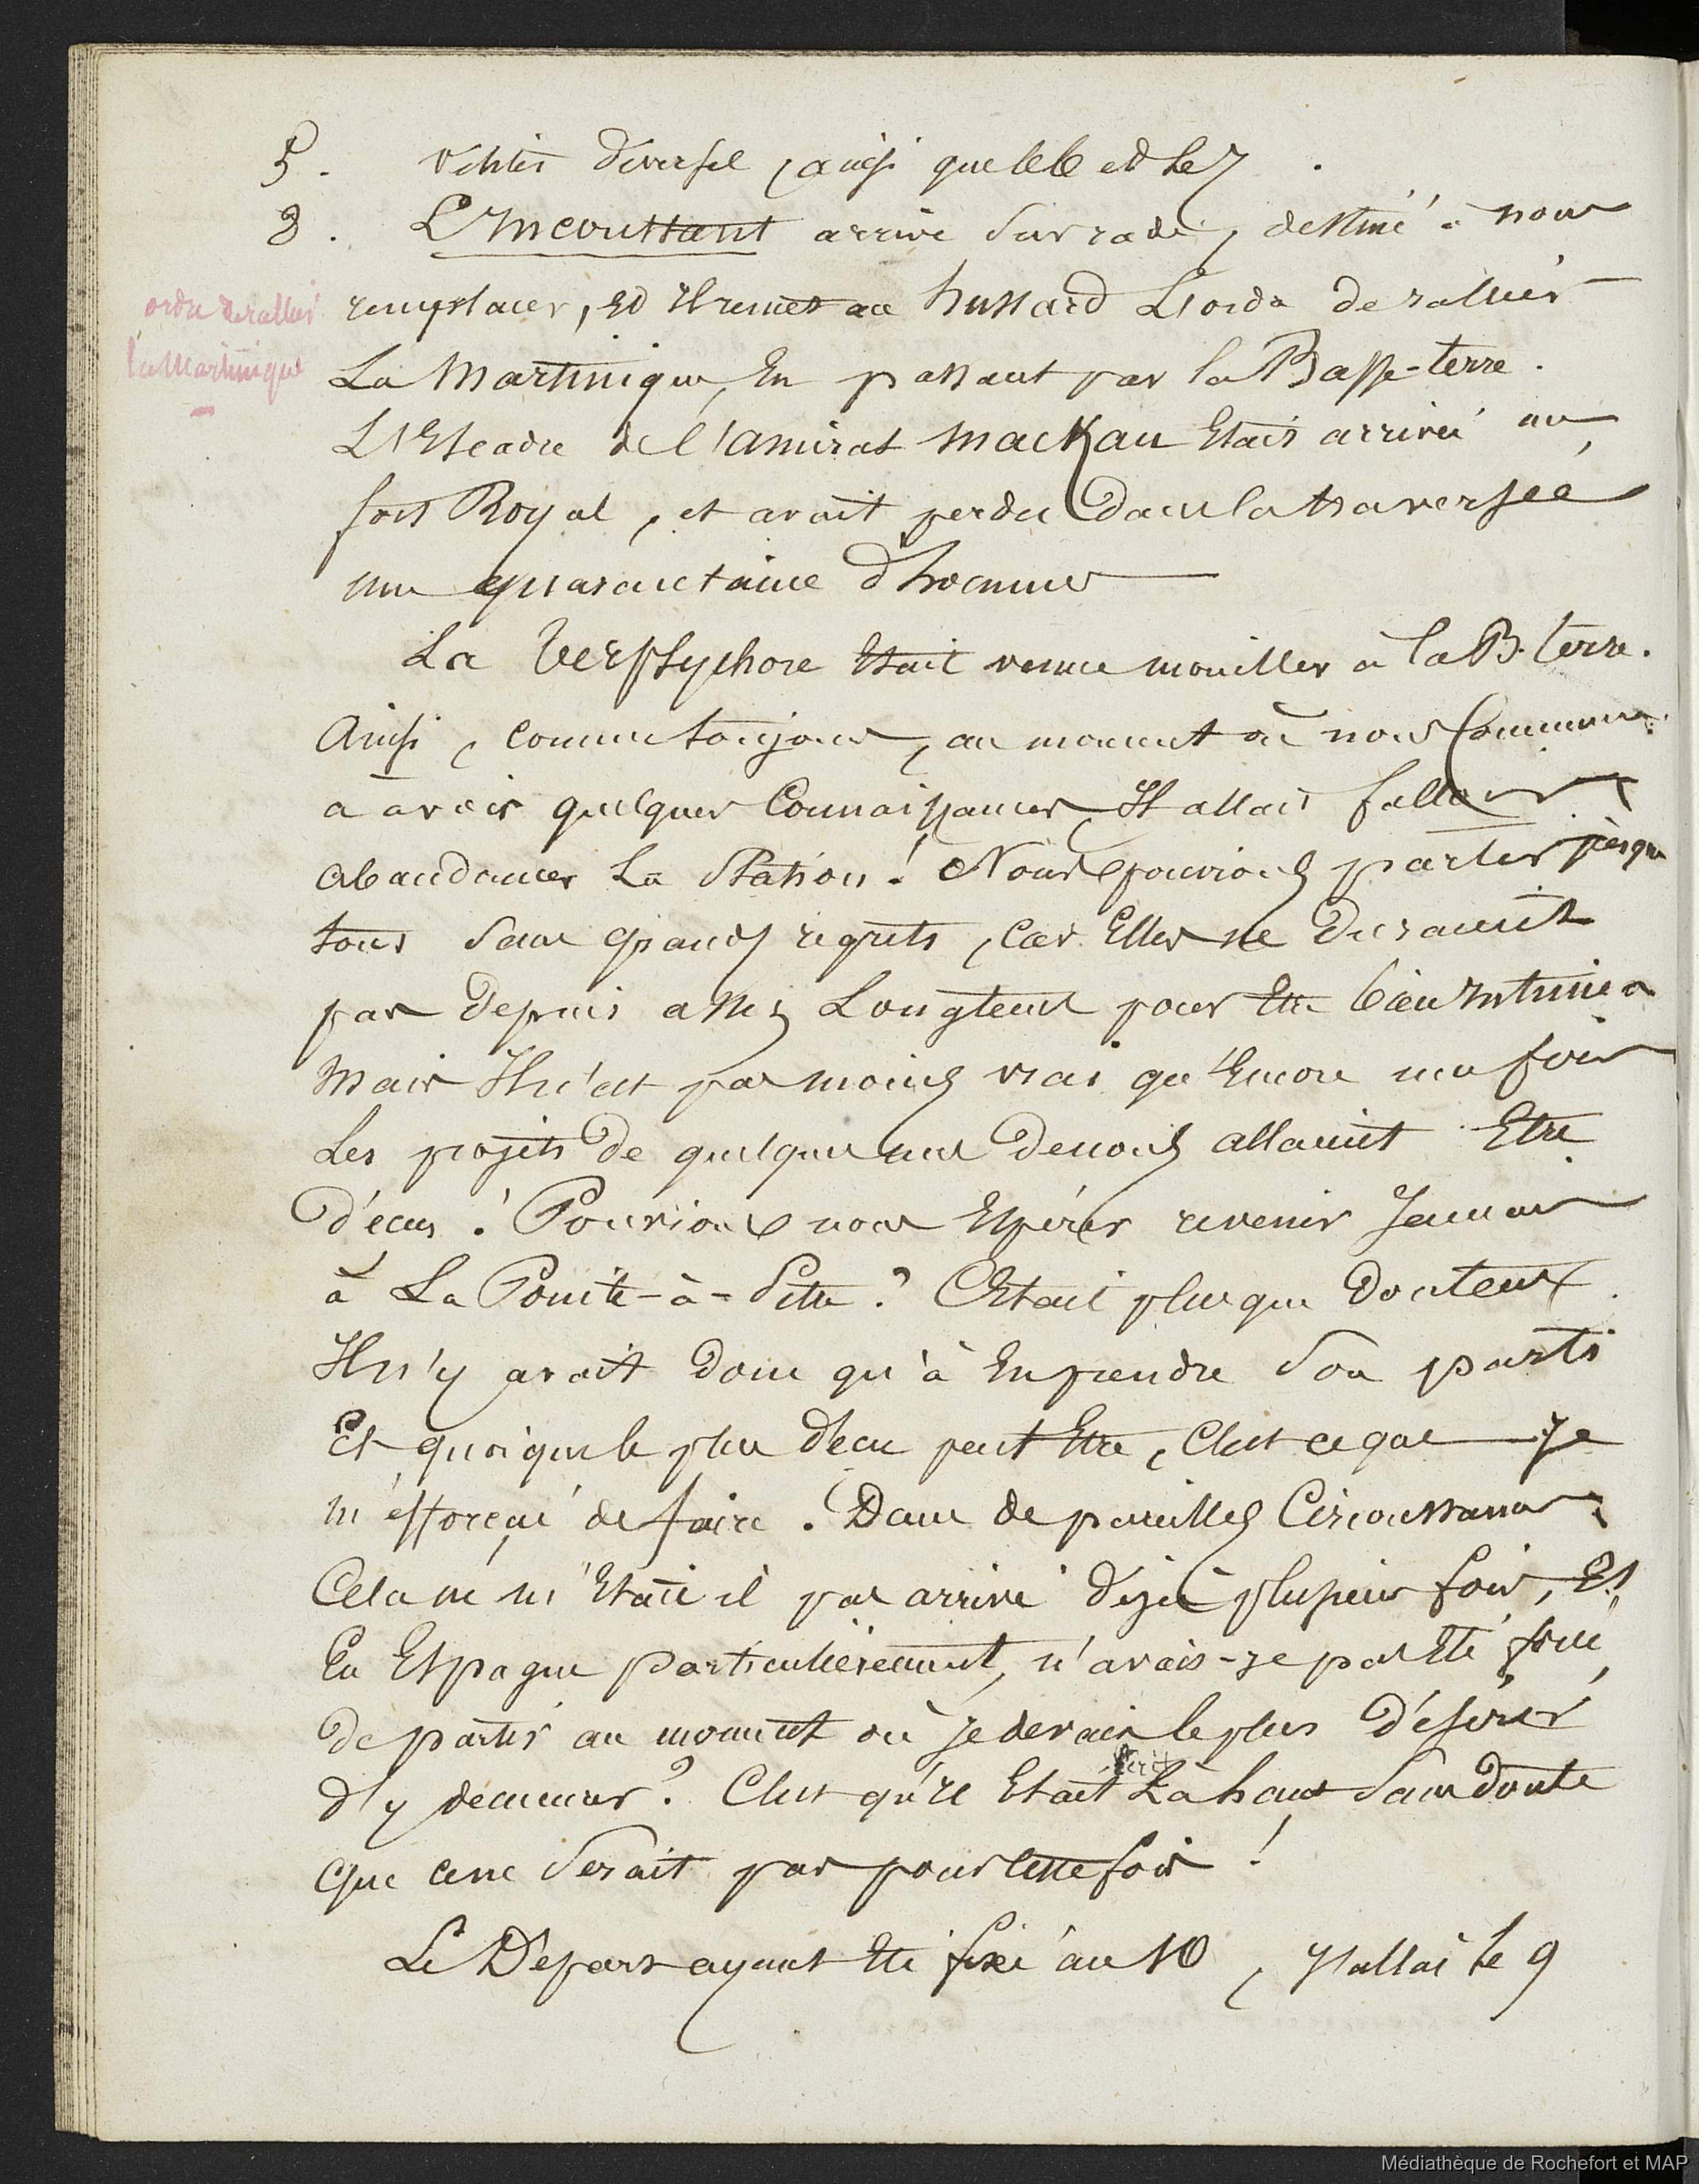 5. Visites diverses, ainsi que le 6 et le 7.
8. L'Inconstant arrive sur rade, destiné à nous
ordre de rallier
la Martinique
remplacer, et il remet au hussard L'ordre de rallier
La Martinique, En passant par la Basse-terre.
L'Escadre de l'amiral Mackau Etait arrivée au
fort Royal, et avait perdu Dans la traversée
une quarantaine d'hommes
La Terpsychore Etait venue mouiller à la B. terre.
Ainsi, comme toujours, au moment où nous
à avoir quelques Connaissances, Il allait falloir
abandonner La Station! Nous pouvions partir presque
tous sans grands regrets, Car Elles ne Duraient
pas Depuis assez Longtems pour Etre bien Intimes
Mais Il n'est pas moins vrai qu'Encore une fois
Les projets De quelques uns De nous allaient Etre
Déçus! Pourions nous Espérer revenir Jamais
à La Pointe-à-Pitre? C'Etait plus que Douteux.
Il n'y avait Donc qu'à En prendre Son parti
Et quoique le plus Déçu peut Etre, C'est ce que Je
m'efforçai de faire. Dans de pareilles Circonstances
Cela ne m'Etait il pas arrivé Déjà plusieurs fois, Et
En Espagne Particulièrement, n'avais-je pas Eté forcé
De partir au moment où je devais le plus Désirer
d'y demeurer? C'est qu'il Etait Ecrit Là haut Sans Doute
Que ce ne Serait pas pour cette fois!
Le Départ ayant Eté fixé au 10, J'allai le 9
Médiathèque de Rochefort et MAP